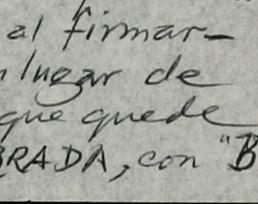 al firmar-
lugar de
que quede
BRADA, con "B